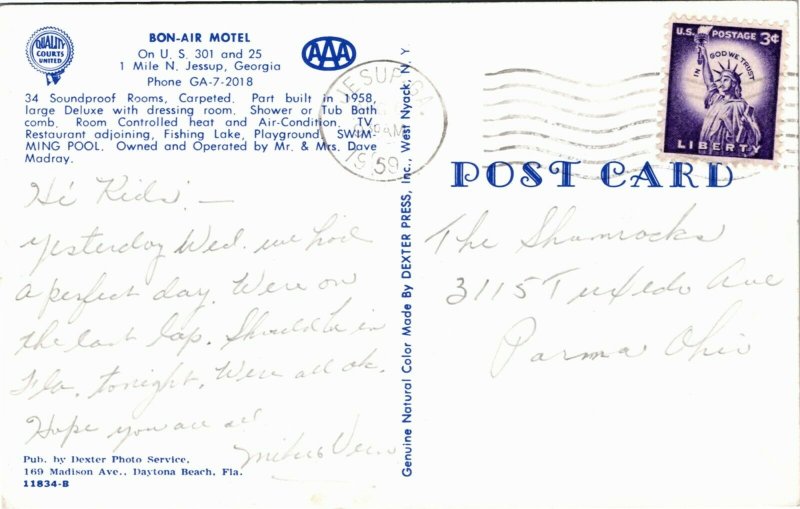 QUALITY
COURTS
UNITED
BON-AIR MOTEL
On U. S. 301 and 25
1 Mile N. Jessup, Georgia
Phone GA-7-2018
AAA
34 Soundproof Rooms, Carpeted. Part built in 1958,
large Deluxe with dressing room. Shower or Tub Bath
comb. Room Controlled heat and Air-Condition. TV.
Restaurant adjoining, Fishing Lake, Playground. SWIM-
MING POOL. Owned and Operated by Mr. & Mrs. Dave
Madray.
Hi Kids. —
yesterday Wed. we had
a perfect day. Were on
the last lap. Should be in
Fla. tonight. Were all ok.
Hope you are all
Pub. by Dexter Photo Service,
169 Madison Ave., Daytona Beach, Fla.
11834-B
Genuine Natural Color Made By DEXTER PRESS, Inc., West Nyack, N. Y.
JESUP, GA.
AM
1959
U.S. POSTAGE 3¢
IN GOD WE TRUST
LIBERTY
POST CARD
The Shamrocks
3115 Tuxedo Ave
Parma Ohio